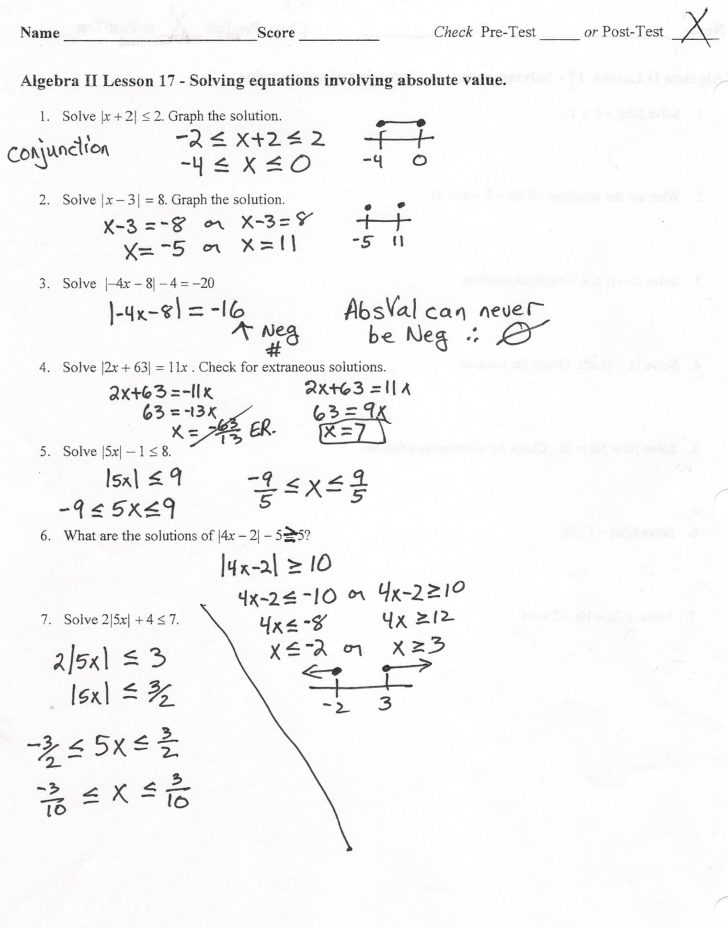 Name ____________ Score ____________ Check Pre-Test _____ or Post-Test _____ X
Algebra II Lesson 17 - Solving equations involving absolute value.
1. Solve |x + 2| ≤ 2. Graph the solution.
conjunction
-2 ≤ x+2 ≤ 2
-4 ≤ x ≤ 0
-4 0
2. Solve |x − 3| = 8. Graph the solution.
x-3 = -8 or x-3 = 8
x = -5 or x = 11
-5 11
3. Solve |−4x − 8| − 4 = −20
|-4x-8| = -16
↑ Neg #
AbsVal can never
be Neg ∴ ∅
4. Solve |2x + 63| = 11x . Check for extraneous solutions.
2x+63 = -11x
63 = -13x
x = -63/13 ER.
2x+63 = 11x
63 = 9x
x = 7
5. Solve |5x| − 1 ≤ 8.
|5x| ≤ 9
-9 ≤ 5x ≤ 9
-9/5 ≤ x ≤ 9/5
6. What are the solutions of |4x − 2| − 5 ≥ 5?
|4x-2| ≥ 10
4x-2 ≤ -10 or 4x-2 ≥ 10
4x ≤ -8 4x ≥ 12
x ≤ -2 or x ≥ 3
-2 3
7. Solve 2|5x| + 4 ≤ 7.
2|5x| ≤ 3
|5x| ≤ 3/2
-3/2 ≤ 5x ≤ 3/2
-3/10 ≤ x ≤ 3/10